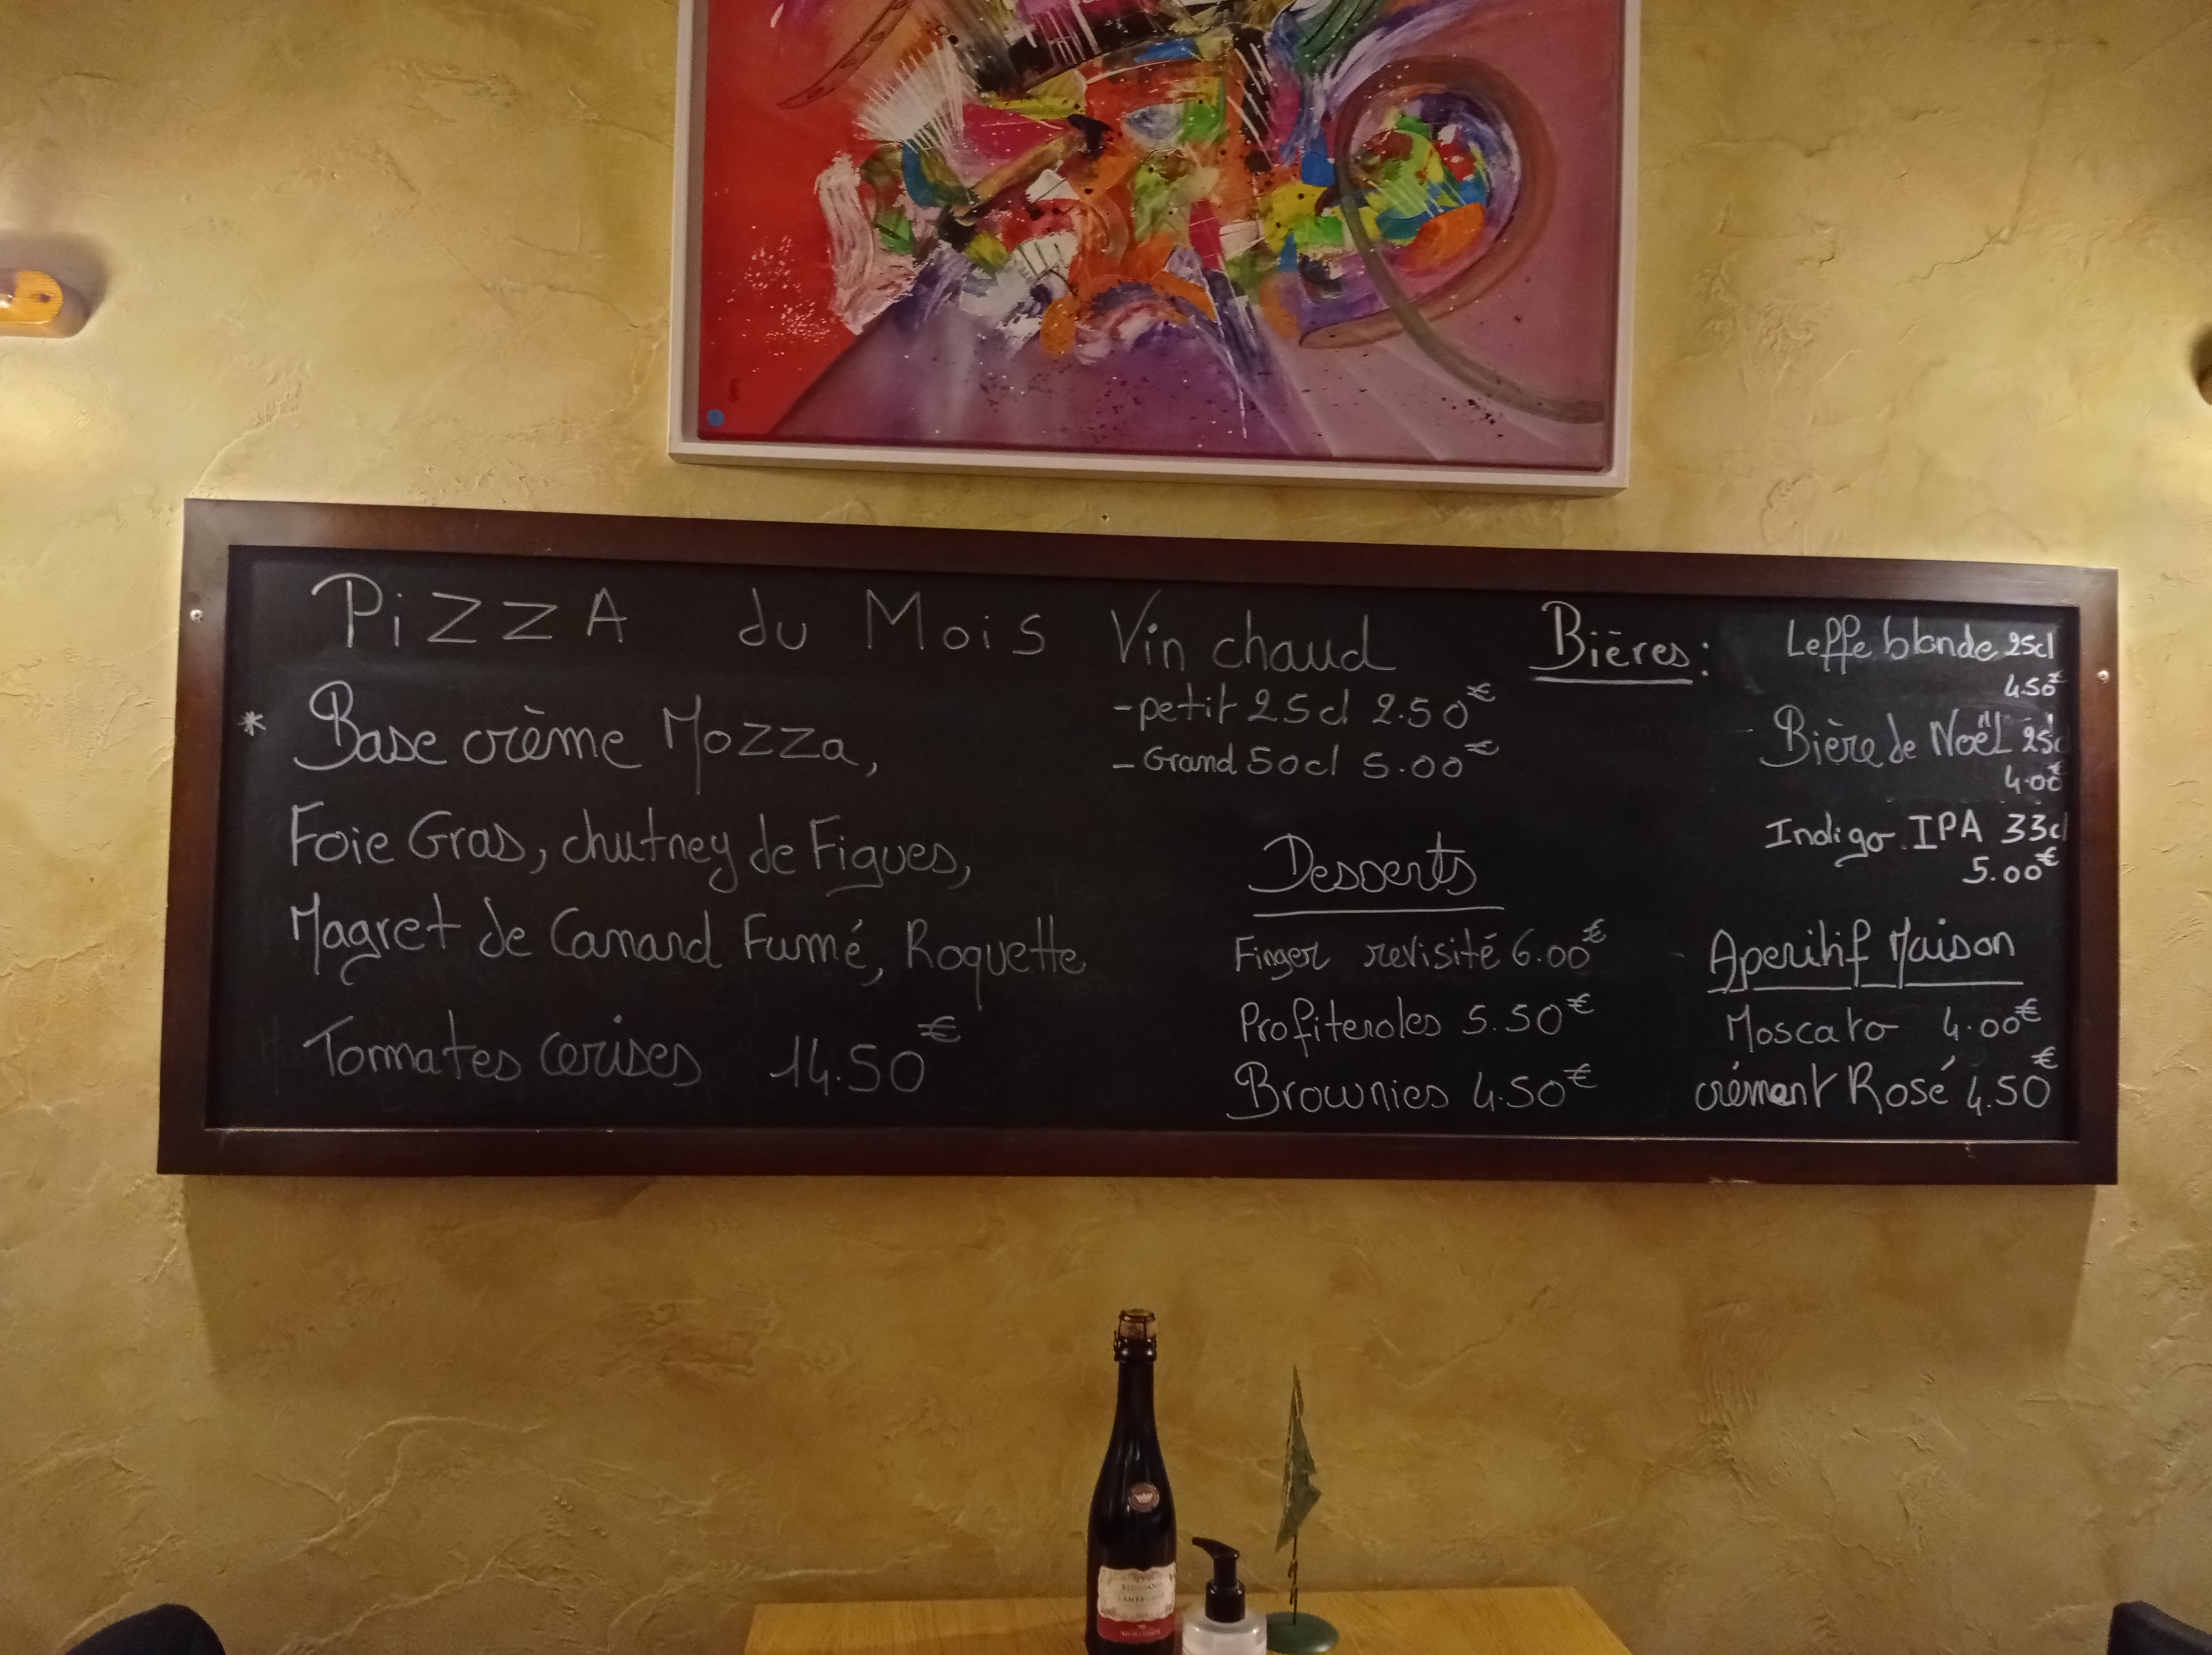 PiZZA du Mois
* Base crème Mozza,
Foie Gras, chutney de Figues,
Magret de Canard Fumé, Roquette
Tomates cerises 14.50€
Vin chaud
- petit 25cl 2.50€
- Grand 50cl 5.00€
Desserts
Finger revisité 6.00€
Profiteroles 5.50€
Brownies 4.50€
Bières: Leffe blonde 25cl
4.50€
Bière de Noël 25c
4.00€
Indigo IPA 33cl
5.00€
Aperitif Maison
Moscato 4.00€
crémant Rosé 4.50€